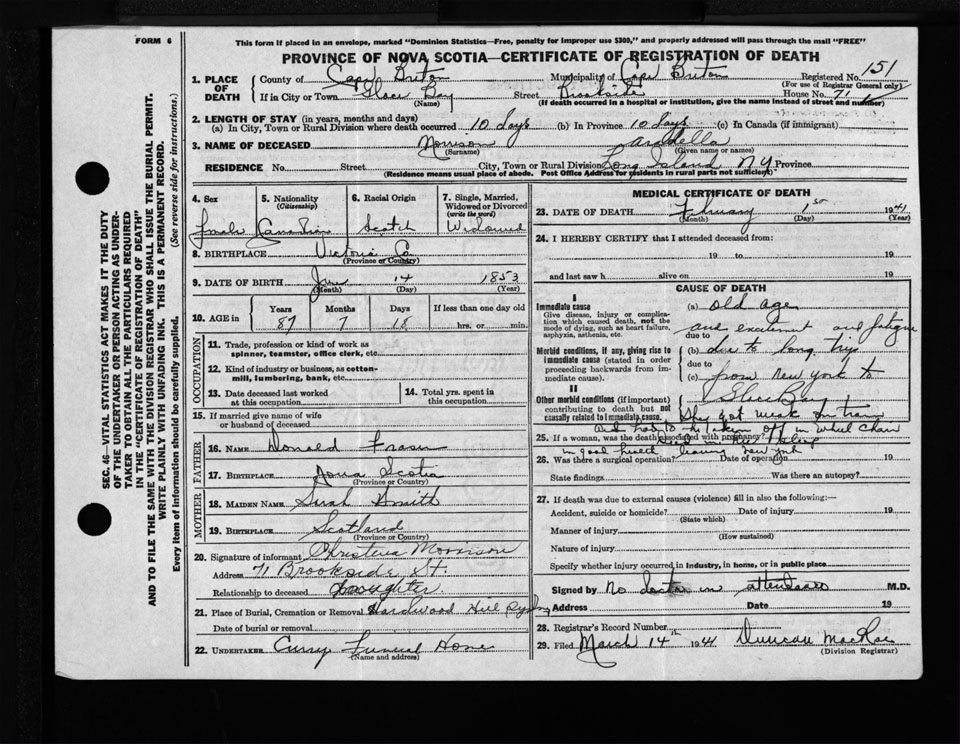 FORM 6
This form if placed in an envelope, marked "Dominion Statistics—Free, penalty for improper use $300," and properly addressed will pass through the mail "FREE"
PROVINCE OF NOVA SCOTIA—CERTIFICATE OF REGISTRATION OF DEATH
1. PLACE OF DEATH County of Cape Breton Municipality of Cape Breton Registered No. 151
(For use of Registrar General only)
If in City or Town Glace Bay Street Brookside House No. 71
(Name) (If death occurred in a hospital or institution, give the name instead of street and number)
2. LENGTH OF STAY (in years, months and days)
(a) In City, Town or Rural Division where death occurred 10 Days (b) In Province 10 Days (c) In Canada (if immigrant)
3. NAME OF DECEASED Morrison Arabella
(Surname) (Given name or names)
RESIDENCE No. Street City, Town or Rural Division Long Island N Y Province
(Residence means usual place of abode. Post Office Address for residents in rural parts not sufficient)
SEC. 46—VITAL STATISTICS ACT MAKES IT THE DUTY
OF THE UNDERTAKER OR PERSON ACTING AS UNDER-
TAKER TO OBTAIN ALL THE PARTICULARS REQUIRED
IN THE "CERTIFICATE OF REGISTRATION OF DEATH"
AND TO FILE THE SAME WITH THE DIVISION REGISTRAR WHO SHALL ISSUE THE BURIAL PERMIT.
WRITE PLAINLY WITH UNFADING INK. THIS IS A PERMANENT RECORD.
Every item of information should be carefully supplied. (See reverse side for instructions.)
4. Sex 5. Nationality (Citizenship) 6. Racial Origin 7. Single, Married, Widowed or Divorced (write the word)
Female Canadian Scotch Widowed
8. BIRTHPLACE Victoria Co
(Province or Country)
9. DATE OF BIRTH June 14 1853
(Month) (Day) (Year)
10. AGE in Years Months Days If less than one day old
87 7 18 hrs. or min.
OCCUPATION
11. Trade, profession or kind of work as spinner, teamster, office clerk, etc.
12. Kind of industry or business, as cotton-mill, lumbering, bank, etc.
13. Date deceased last worked at this occupation 14. Total yrs. spent in this occupation
15. If married give name of wife or husband of deceased
FATHER
16. NAME Donald Fraser
17. BIRTHPLACE Nova Scotia
(Province or Country)
MOTHER
18. MAIDEN NAME Sarah Smith
19. BIRTHPLACE Scotland
(Province or Country)
20. Signature of informant Christena Morrison
Address 71 Brookside St.
Relationship to deceased Daughter
21. Place of Burial, Cremation or Removal Hardwood Hill Sydney
Date of burial or removal
22. UNDERTAKER Curry Funeral Home
(Name and address)
MEDICAL CERTIFICATE OF DEATH
23. DATE OF DEATH February 1st 1941
(Month) (Day) (Year)
24. I HEREBY CERTIFY that I attended deceased from:
19 to 19
and last saw h alive on 19
CAUSE OF DEATH
I
Immediate cause (a) old age
Give disease, injury or complication which caused death, not the mode of dying, such as heart failure, asphyxia, asthenia, etc.
due to and excitement and fatigue
Morbid conditions, if any, giving rise to immediate cause (stated in order proceeding backwards from immediate cause).
(b) due to long trip
due to
(c) from New York to
II
Glace Bay
Other morbid conditions (if important) contributing to death but not causally related to immediate cause.
She got weak on train
and had to be taken off in wheel chair
25. If a woman, was the death associated with pregnancy?
Died in her sleep
in good health leaving New York
26. Was there a surgical operation? Date of operation 19
State findings Was there an autopsy?
27. If death was due to external causes (violence) fill in also the following:—
Accident, suicide or homicide? Date of injury 19
(State which)
Manner of injury
(How sustained)
Nature of injury
Specify whether injury occurred in industry, in home, or in public place
Signed by No doctor in attendance M.D.
Address Date 19
28. Registrar's Record Number
29. Filed March 14th 1941 Duncan MacRae
(Division Registrar)